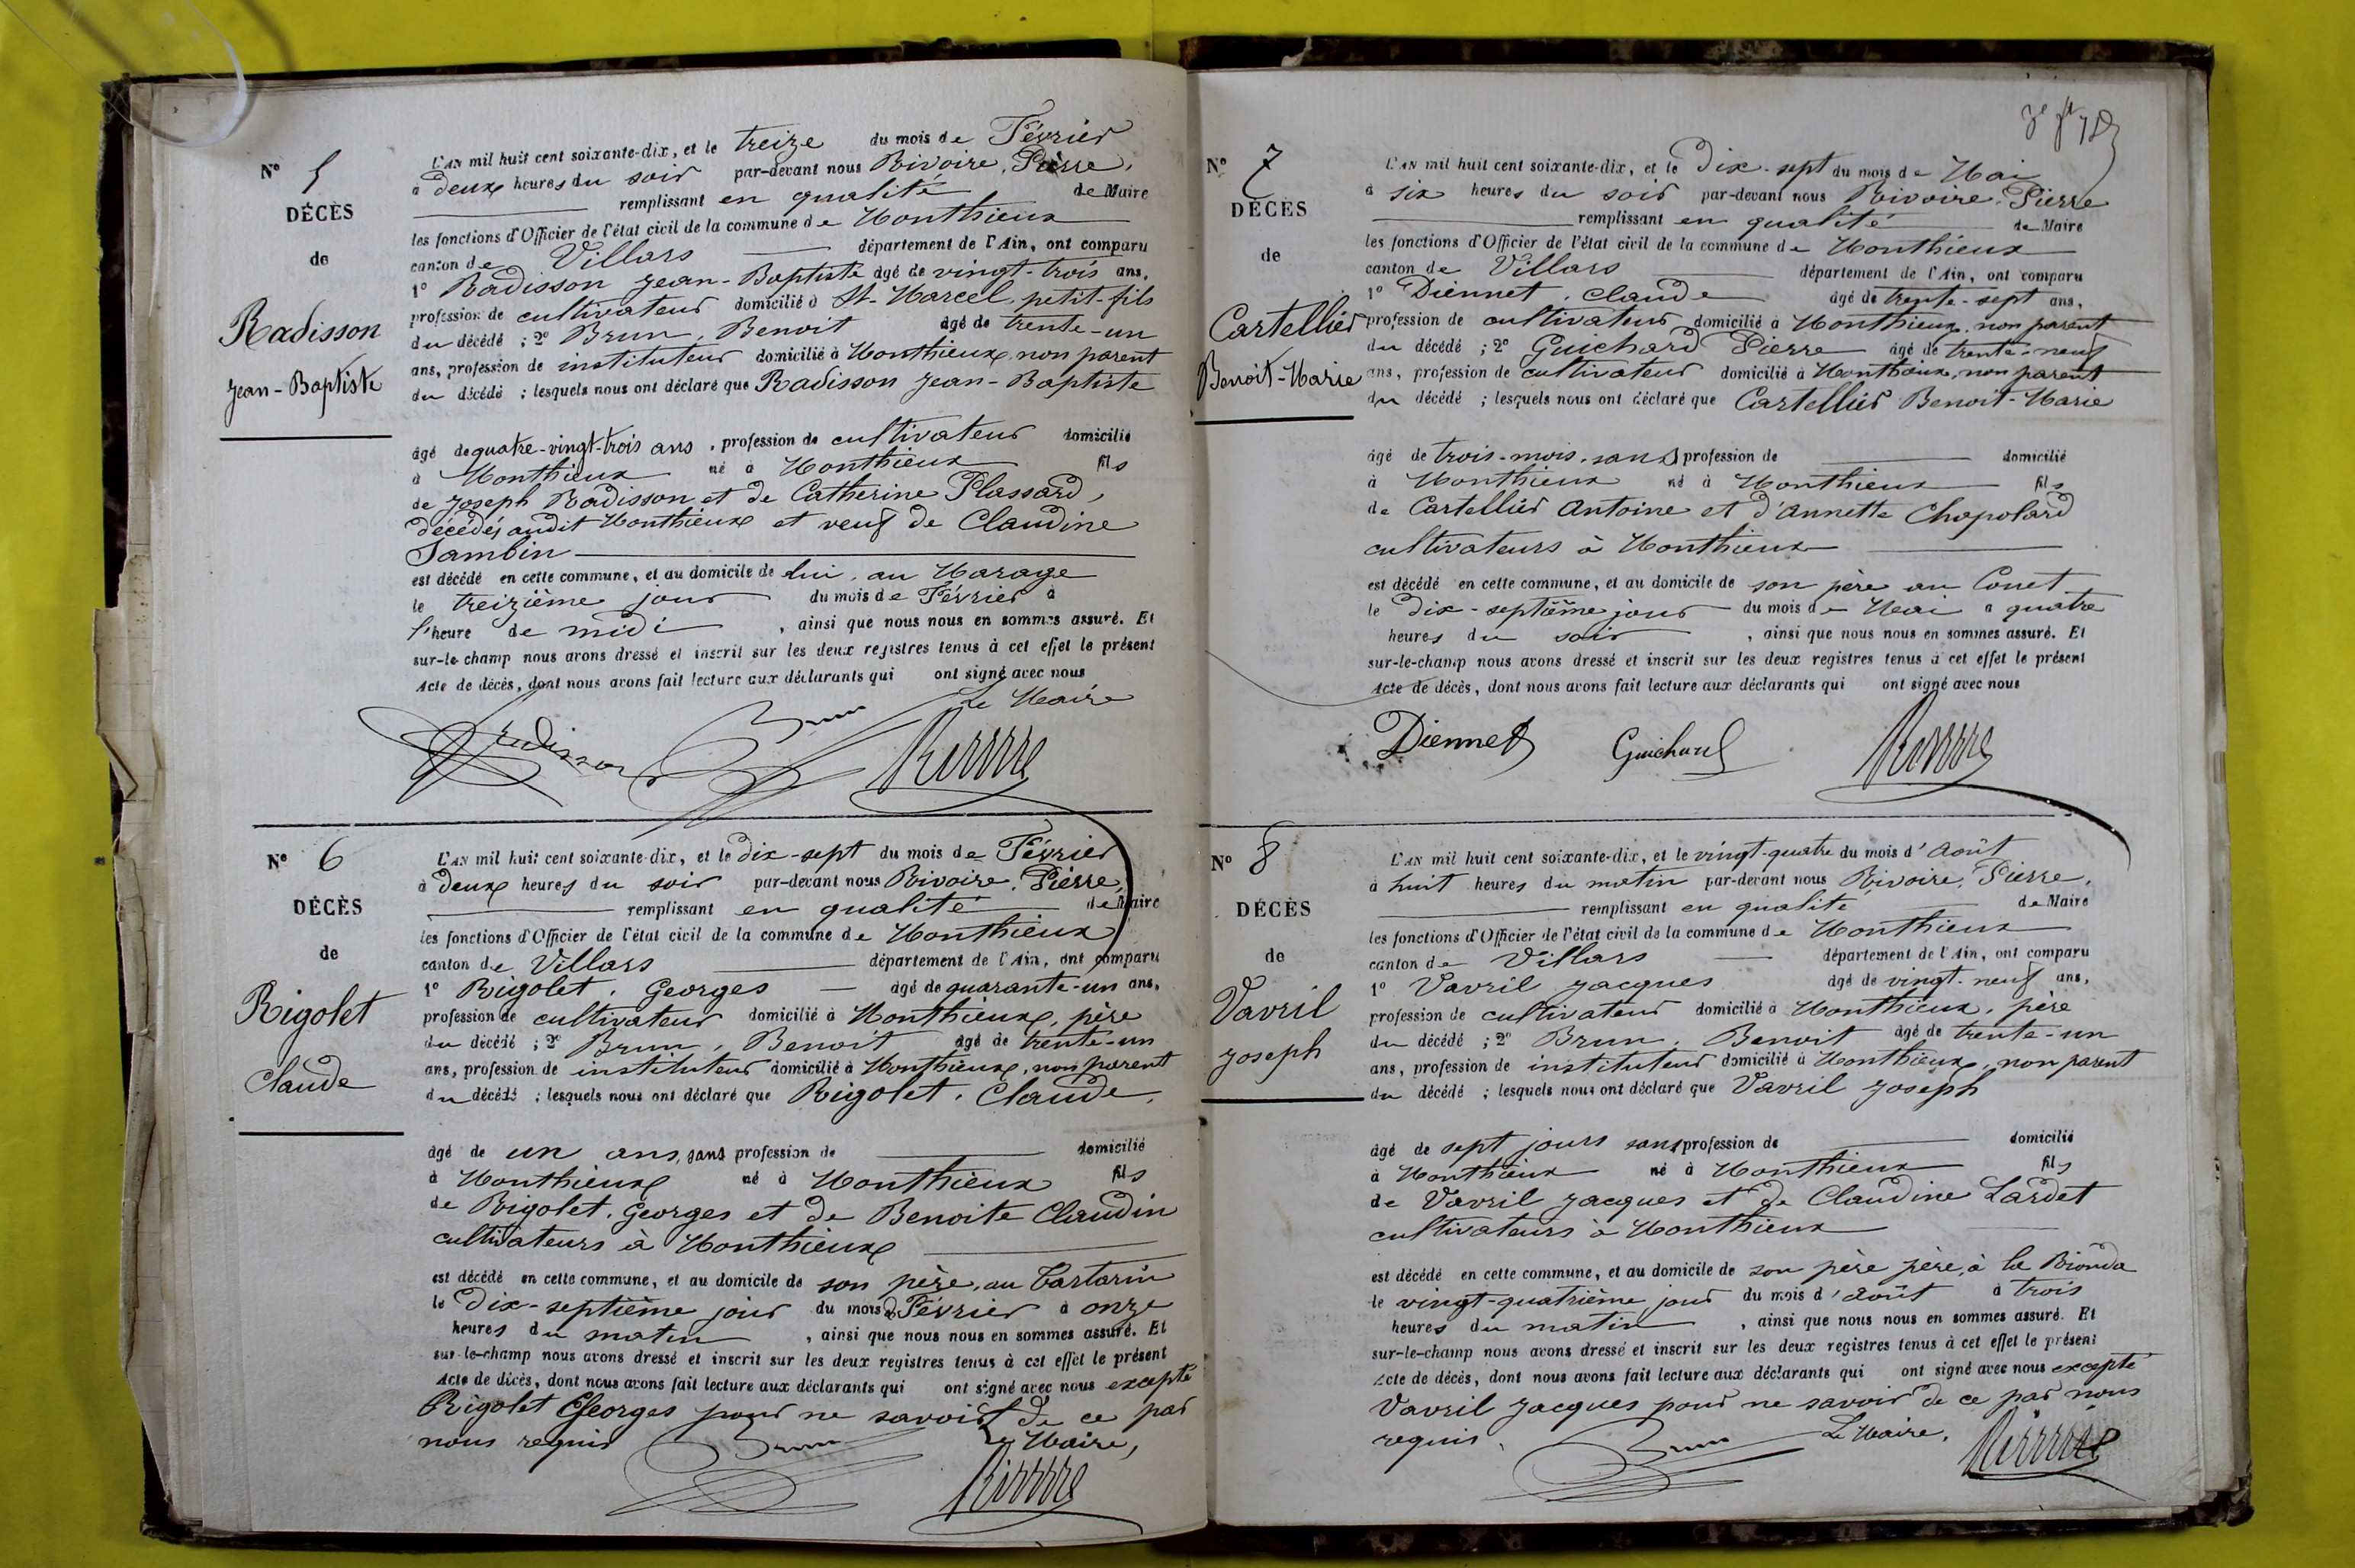 N° 5
DÉCÈS
de
Radisson
Jean-Baptiste
L'AN mil huit cent soixante-dix, et le treize du mois de Février
à deux heures du soir par-devant nous Rivoire, Pierre,
remplissant en qualité de Maire
les fonctions d'Officier de l'état civil de la commune de Monthieux
canton de Villars département de l'Ain, ont comparu
1° Radisson Jean-Baptiste âgé de vingt-trois ans,
profession de cultivateur domicilié à St-Marcel, petit-fils
du décédé ; 2° Brun, Benoit âgé de trente-un
ans, profession de instituteur domicilié à Monthieux, non parent
du décédé ; lesquels nous ont déclaré que Radisson Jean-Baptiste
âgé de quatre-vingt-trois ans, profession de cultivateur domicilié
à Monthieux né à Monthieux fils
de Joseph Radisson et de Catherine Plassard,
décédés audit Monthieux et veuf de Claudine
Jambin
est décédé en cette commune, et au domicile de lui, au Marage
le treizième jour du mois de Février à
l'heure de midi, ainsi que nous nous en sommes assuré. Et
sur-le-champ nous avons dressé et inscrit sur les deux registres tenus à cet effet le présent
Acte de décès, dont nous avons fait lecture aux déclarants qui ont signé avec nous
Le Maire
Radisson Brun Rivoire
N° 6
DÉCÈS
de
Rigolet
Claude
L'AN mil huit cent soixante-dix, et le dix-sept du mois de Février
à deux heures du soir par-devant nous Rivoire, Pierre,
remplissant en qualité de Maire
les fonctions d'Officier de l'état civil de la commune de Monthieux
canton de Villars département de l'Ain, ont comparu
1° Rigolet, Georges âgé de quarante-un ans,
profession de cultivateur domicilié à Monthieux, père
du décédé ; 2° Brun, Benoit âgé de trente-un
ans, profession de instituteur domicilié à Monthieux, non parent
du décédé ; lesquels nous ont déclaré que Rigolet, Claude,
âgé de un ans, sans profession de domicilié
à Monthieux né à Monthieux fils
de Rigolet, Georges et de Benoite Claudin
cultivateurs à Monthieux
est décédé en cette commune, et au domicile de son père, au Tartarin
le dix-septième jour du mois de Février à onze
heures du matin, ainsi que nous nous en sommes assuré. Et
sur-le-champ nous avons dressé et inscrit sur les deux registres tenus à cet effet le présent
Acte de décès, dont nous avons fait lecture aux déclarants qui ont signé avec nous excepté
Rigolet Georges pour ne savoir de ce par
nous requis Le Maire,
Brun Rivoire
N° 7
DÉCÈS
de
Cartellier
Benoit-Marie
L'AN mil huit cent soixante-dix, et le Dix-sept du mois de Mai
à six heures du soir par-devant nous Rivoire, Pierre
remplissant en qualité de Maire
les fonctions d'Officier de l'état civil de la commune de Monthieux
canton de Villars département de l'Ain, ont comparu
1° Diennet, Claude âgé de trente-sept ans,
profession de cultivateur domicilié à Monthieux, non parent
du décédé ; 2° Guichard Pierre âgé de trente-neuf
ans, profession de cultivateur domicilié à Monthieux, non parent
du décédé ; lesquels nous ont déclaré que Cartellier Benoit-Marie
âgé de trois-mois, sans profession de domicilié
à Monthieux né à Monthieux fils
de Cartellier Antoine et d'Annette Chapolard
cultivateurs à Monthieux
est décédé en cette commune, et au domicile de son père au Couet
le dix-septième jour du mois de Mai à quatre
heures du soir, ainsi que nous nous en sommes assuré. Et
sur-le-champ nous avons dressé et inscrit sur les deux registres tenus à cet effet le présent
Acte de décès, dont nous avons fait lecture aux déclarants qui ont signé avec nous
Diennet Guichard Rivoire
N° 8
DÉCÈS
de
Vavril
Joseph
L'AN mil huit cent soixante-dix, et le vingt-quatre du mois d'Août
à huit heures du matin par-devant nous Rivoire, Pierre,
remplissant en qualité de Maire
les fonctions d'Officier de l'état civil de la commune de Monthieux
canton de Villars département de l'Ain, ont comparu
1° Vavril Jacques âgé de vingt-neuf ans,
profession de cultivateur domicilié à Monthieux, père
du décédé ; 2° Brun, Benoit âgé de trente-un
ans, profession de instituteur domicilié à Monthieux, non parent
du décédé ; lesquels nous ont déclaré que Vavril Joseph
âgé de sept jours sans profession de domicilié
à Monthieux né à Monthieux fils
de Vavril Jacques et de Claudine Lardet
cultivateurs à Monthieux
est décédé en cette commune, et au domicile de son père père, à la Bionda
le vingt-quatrième jour du mois d'Août à trois
heures du matin, ainsi que nous nous en sommes assuré. Et
sur-le-champ nous avons dressé et inscrit sur les deux registres tenus à cet effet le présent
Acte de décès, dont nous avons fait lecture aux déclarants qui ont signé avec nous excepté
Vavril Jacques pour ne savoir de ce par nous
requis. Le Maire,
Brun Rivoire